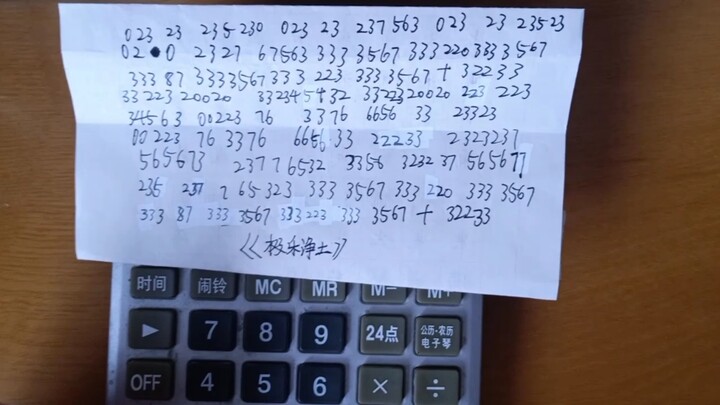 023 23 235 230 023 23 237563 023 23 23523
02●0 2327 67563 333 3567 333 220 333 3567
333 87 333 3567 333 223 333 3567 + 32233
33 223 20020 332345432 3322320020 223 223
34563 00223 76 3376 6656 33 23323
00 223 76 3376 6656 33 22233 2323237
565673 23776532 3356 3232 37 565677
235 237 2 65 323 333 3567 333 220 333 3567
333 87 333 3567 333 223 333 3567 + 32233
《极乐净土》
时间 闹铃 MC MR M− M+
▶ 7 8 9 24点 公历·农历 电子琴
OFF 4 5 6 × ÷